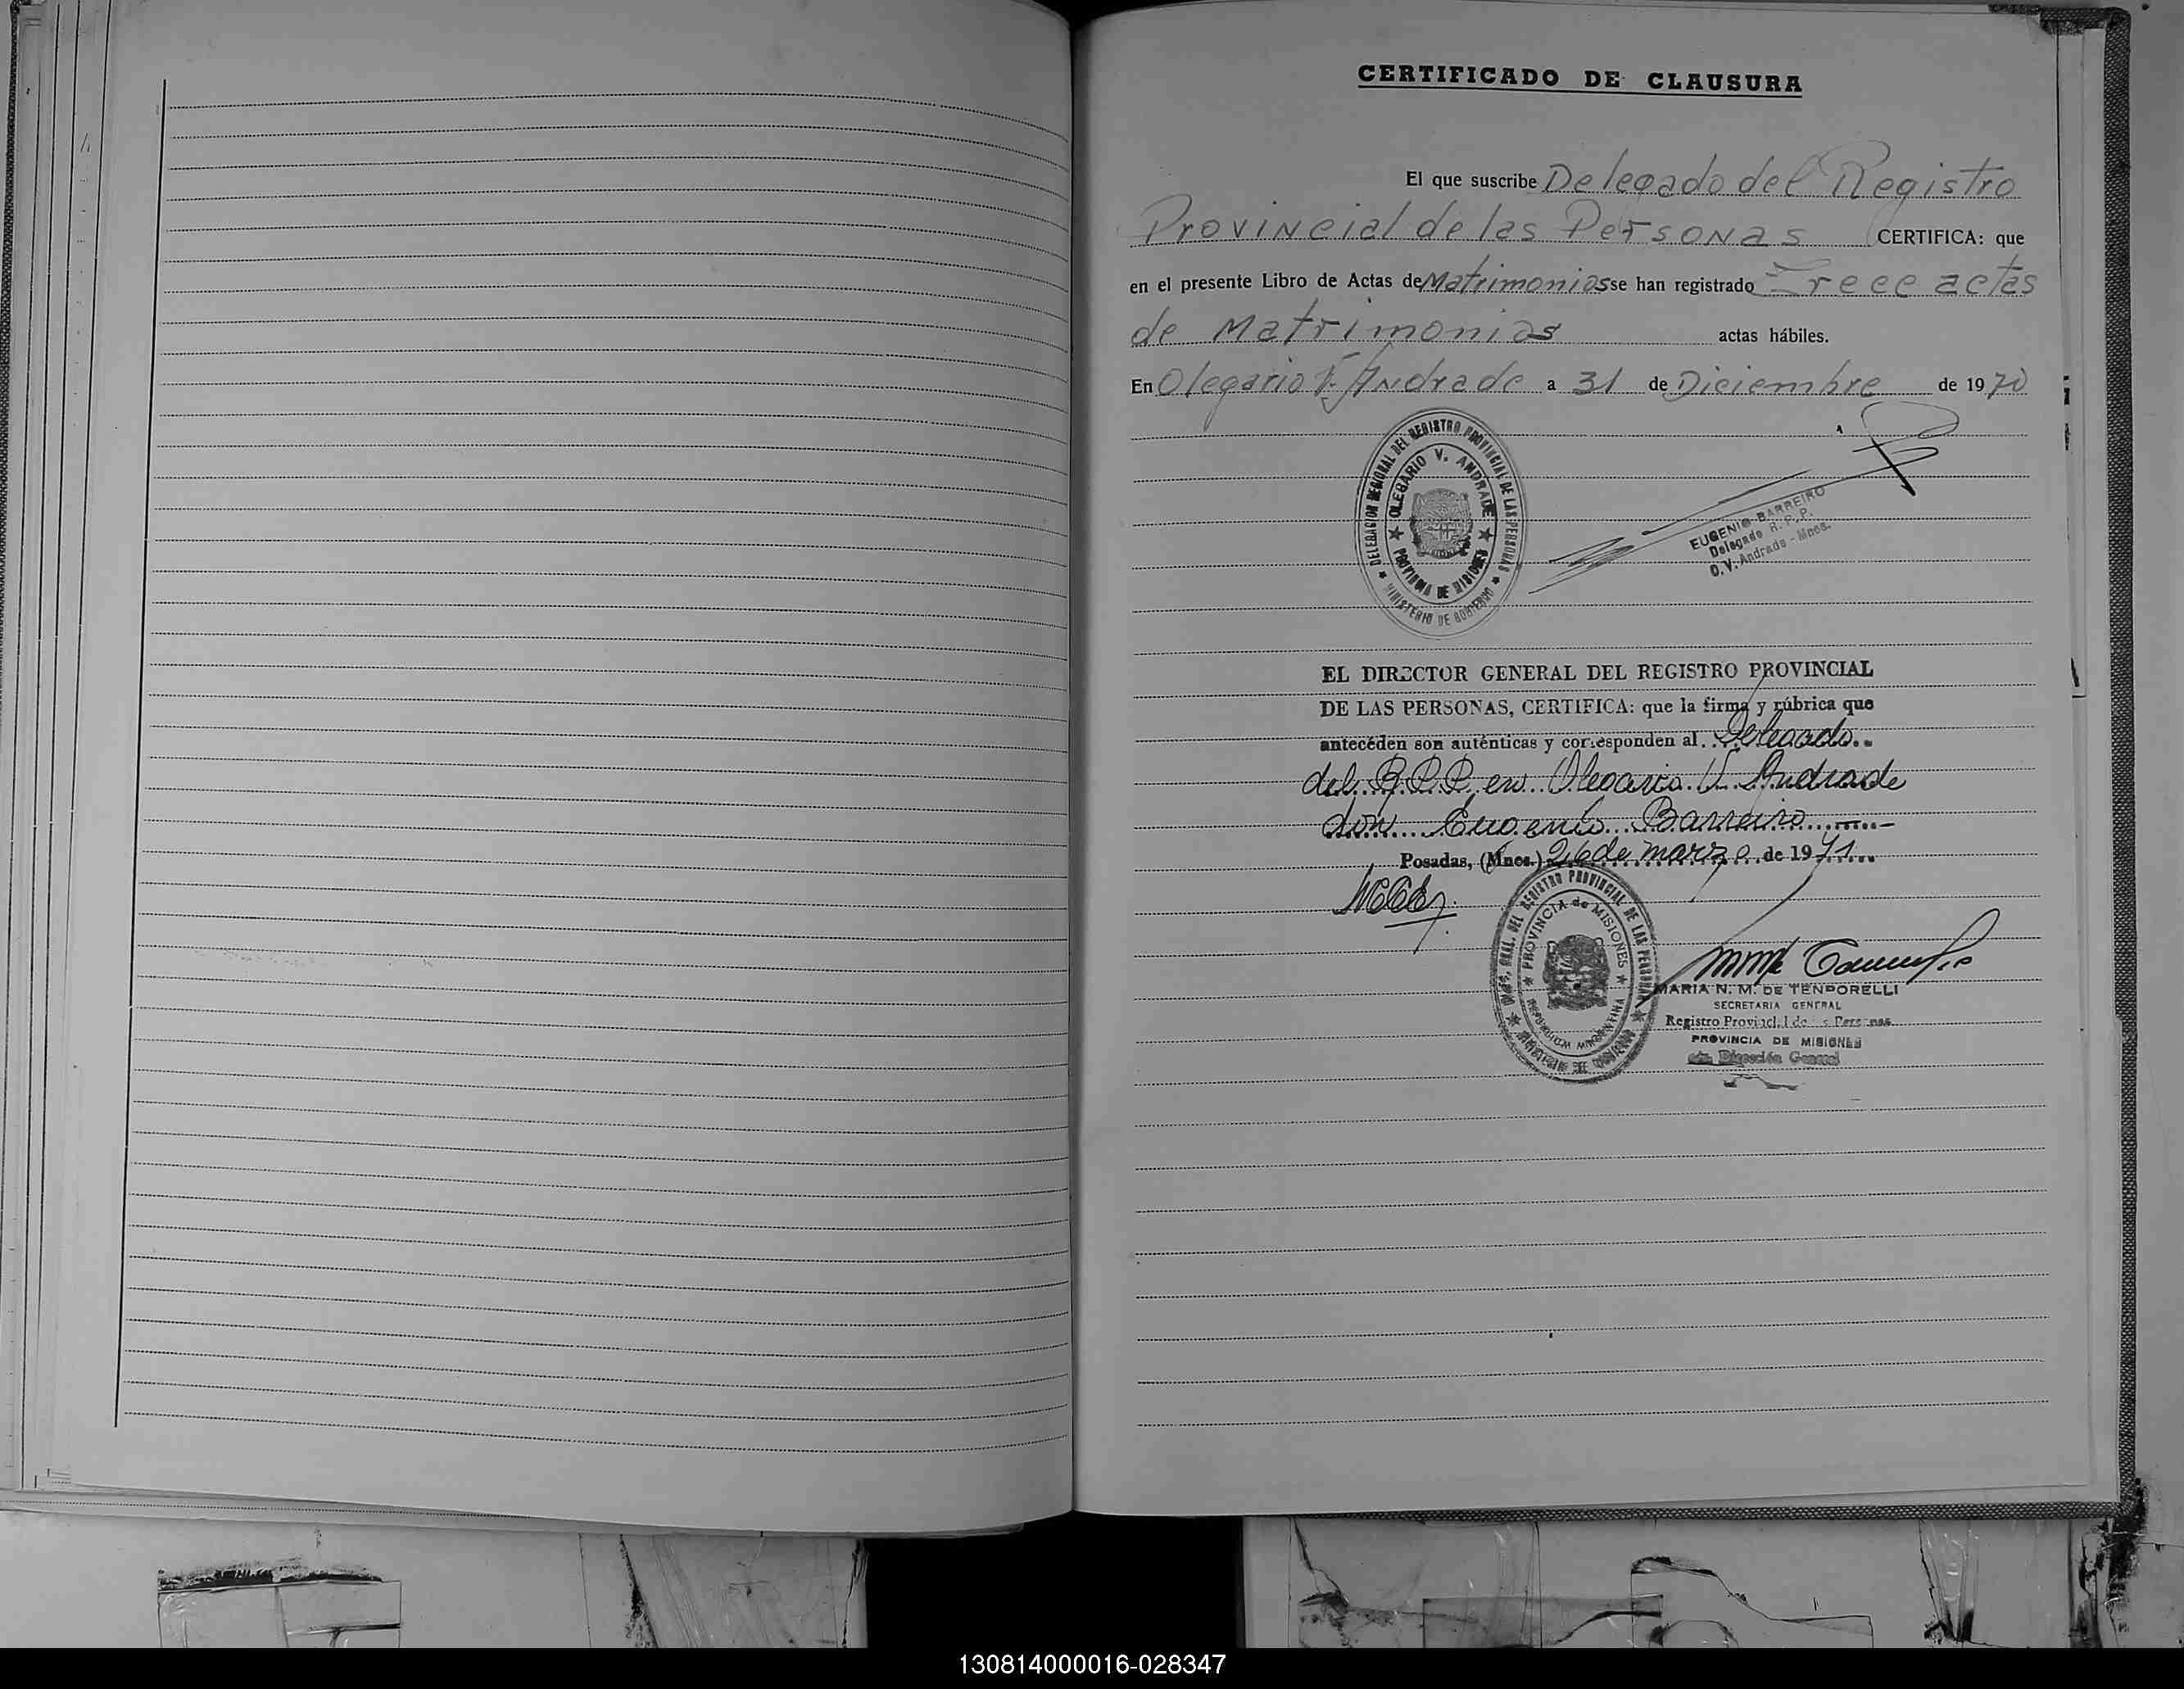 CERTIFICADO DE CLAUSURA
El que suscribe Delegado del Registro
Provincial de las Personas CERTIFICA: que
en el presente Libro de Actas de Matrimonios se han registrado Trece actas
de Matrimonios actas hábiles.
En Olegario V. Andrade a 31 de Diciembre de 1970
DELEGACION REGIONAL DEL REGISTRO PROVINCIAL DE LAS PERSONAS
MINISTERIO DE GOBIERNO
OLEGARIO V. ANDRADE
PROVINCIA DE MISIONES
EUGENIO BARREIRO
Delegado R.P.P.
O.V. Andrade - Mnes.
EL DIRECTOR GENERAL DEL REGISTRO PROVINCIAL
DE LAS PERSONAS, CERTIFICA: que la firma y rúbrica que
antecéden son auténticas y corresponden al Delegado
del R.P.P. en Olegario V. Andrade
don Eugenio Barreiro
Posadas, (Mnes.) 26 de marzo de 1971
GRAL. DEL REGISTRO PROVINCIAL DE LAS PERSONAS
PROVINCIA de MISIONES
REPUBLICA ARGENTINA
MARIA N. M. DE TENPORELLI
SECRETARIA GENERAL
Registro Provincial de las Personas
PROVINCIA DE MISIONES
Dirección General
130814000016-028347